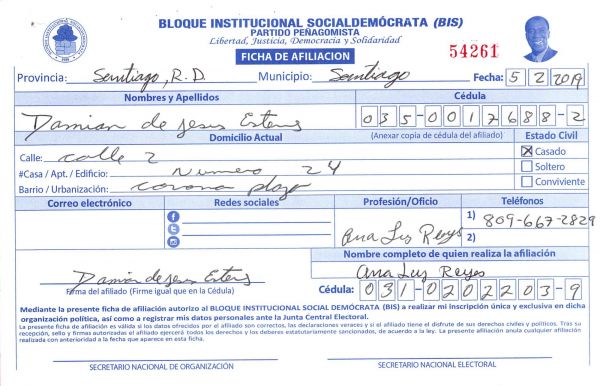 BLOQUE INSTITUCIONAL SOCIALDEMÓCRATA (BIS)
PARTIDO PEÑAGOMISTA
Libertad, Justicia, Democracia y Solidaridad
FICHA DE AFILIACION
54261
Provincia: Santiago, R.D. Municipio: Santiago Fecha: 5 2 2019
Nombres y Apellidos Cédula
Damian de Jesus 035-0017688-2
Domicilio Actual (Anexar copia de cédula del afiliado) Estado Civil
Calle: calle 2 Casado
#Casa / Apt. / Edificio: Numero 24 Soltero
Barrio / Urbanización: corona plaza Conviviente
Correo electrónico Redes sociales Profesión/Oficio Teléfonos
1) 809-667-2829
Ana Luz Reyes 2)
Nombre completo de quien realiza la afiliación
Damian de Jesus Ana Luz Reyes
Firma del afiliado (Firme igual que en la Cédula) Cédula: 031-0202203-9
Mediante la presente ficha de afiliación autorizo al BLOQUE INSTITUCIONAL SOCIAL DEMÓCRATA (BIS) a realizar mi inscripción única y exclusiva en dicha
organización política, así como a registrar mis datos personales ante la Junta Central Electoral.
La presente ficha de afiliación es válida si los datos ofrecidos por el afiliado son correctos, las declaraciones veraces y si el afiliado tiene el disfrute de sus derechos civiles y políticos. Tras su
recepción, sello y firma autorizadas el afiliado ejercerá todos los derechos y los deberes estatutariamente sancionados, de acuerdo a la ley. La presente afiliación anula cualquier afiliación
realizada con anterioridad a la fecha que aparece en esta ficha.
SECRETARIO NACIONAL DE ORGANIZACIÓN SECRETARIO NACIONAL ELECTORAL